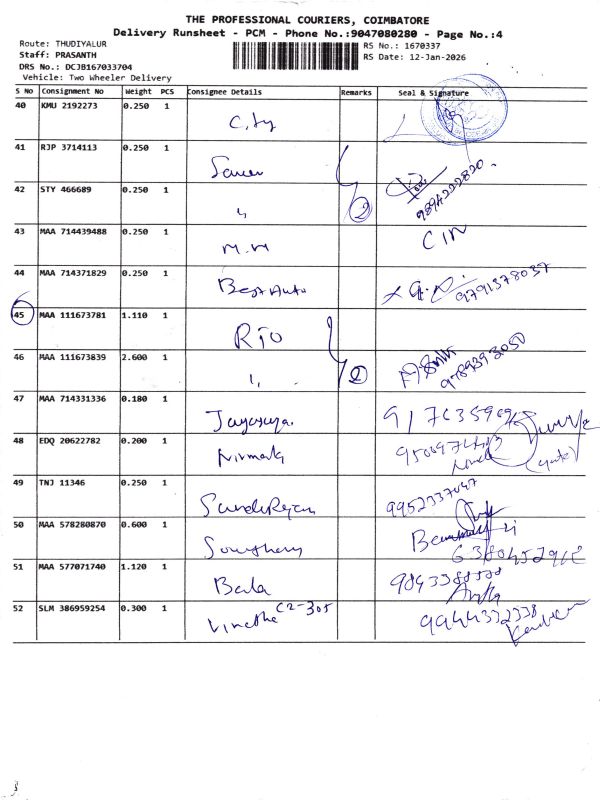 THE PROFESSIONAL COURIERS, COIMBATORE
Delivery Runsheet - PCM - Phone No.:9047080280 - Page No.:4
Route: THUDIYALUR
Staff: PRASANTH
DRS No.: DCJB167033704
Vehicle: Two Wheeler Delivery
RS No.: 1670337
RS Date: 12-Jan-2026
S No Consignment No Weight PCS Consignee Details Remarks Seal & Signature
40 KMU 2192273 0.250 1 City
41 RJP 3714113 0.250 1
42 STY 466689 0.250 1 " 2 9894222820
43 MAA 714439488 0.250 1 M.M
44 MAA 714371829 0.250 1 Best Auto 9791378037
45 MAA 111673781 1.110 1 RIO
46 MAA 111673839 2.600 1 " 2 9789393050
47 MAA 714331336 0.180 1
48 EDQ 20622782 0.200 1 Nirmala
49 TNJ 11346 0.250 1 9952337047
50 MAA 578280870 0.600 1
51 MAA 577071740 1.120 1 Bala
52 SLM 386959254 0.300 1 C2-305 9944332338